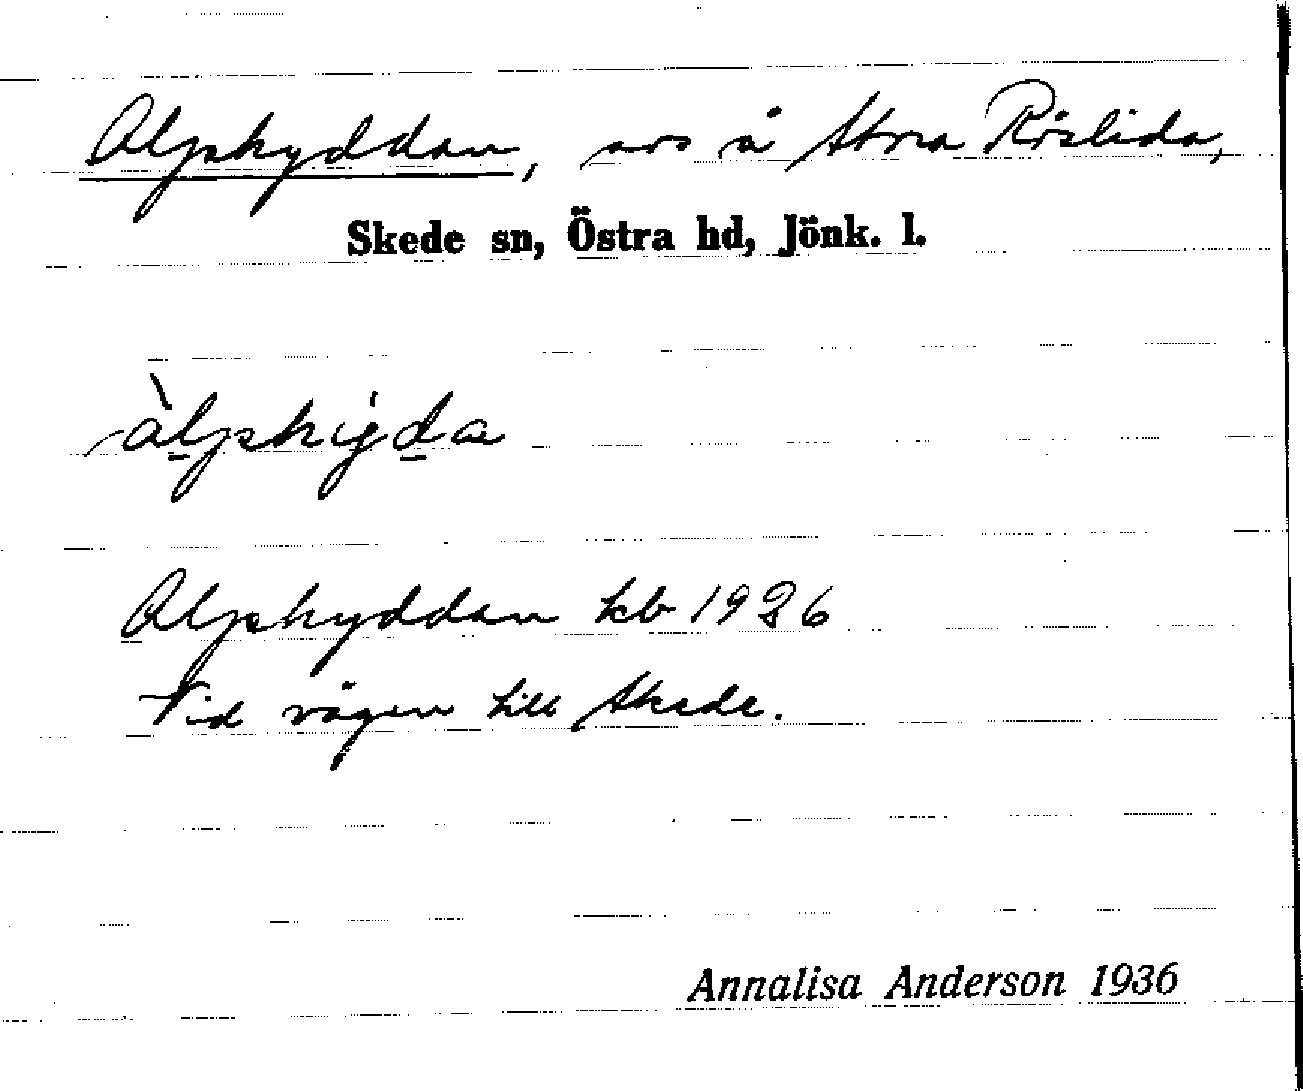 Alpskyddan, avs å Stora Röslida,
Skede sn, Östra hd, Jönk. l.
àlpskýda
Alpskyddan kb 1936
Vid vägen till Skede.
Annalisa Anderson 1936